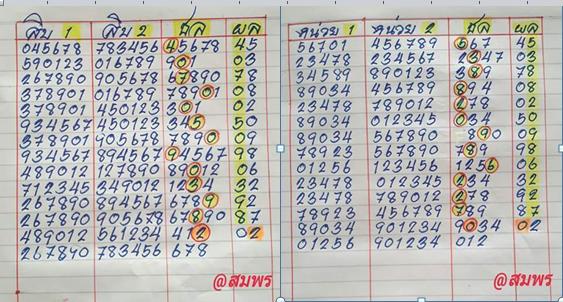 สิบ 1 สิบ 2 ชุด ผล
045678 783456 45678 45
590123 016789 901 03
267890 905678 67890 78
378901 016789 78901 08
378901 450123 01 02
934567 450123 345 50
378901 905678 7890 09
934567 894567 941567 98
489012 127890 89012 06
712345 349012 1234 32
267890 894567 6789 92
267890 905678 67890 87
489012 561234 412 02
267890 783456 678
@สมพร
หน่วย 1 หน่วย 2 ชุด ผล
56701 456789 567 45
23478 234567 2347 03
34589 890123 389 78
89034 456789 894 08
23478 789012 278 02
89034 012345 034 50
89034 567890 890 09
78923 567890 789 98
01256 123456 1256 06
23478 012345 234 32
23478 789012 278 92
78923 456789 789 87
89034 901234 9034 02
01256 901234 012
@สมพร